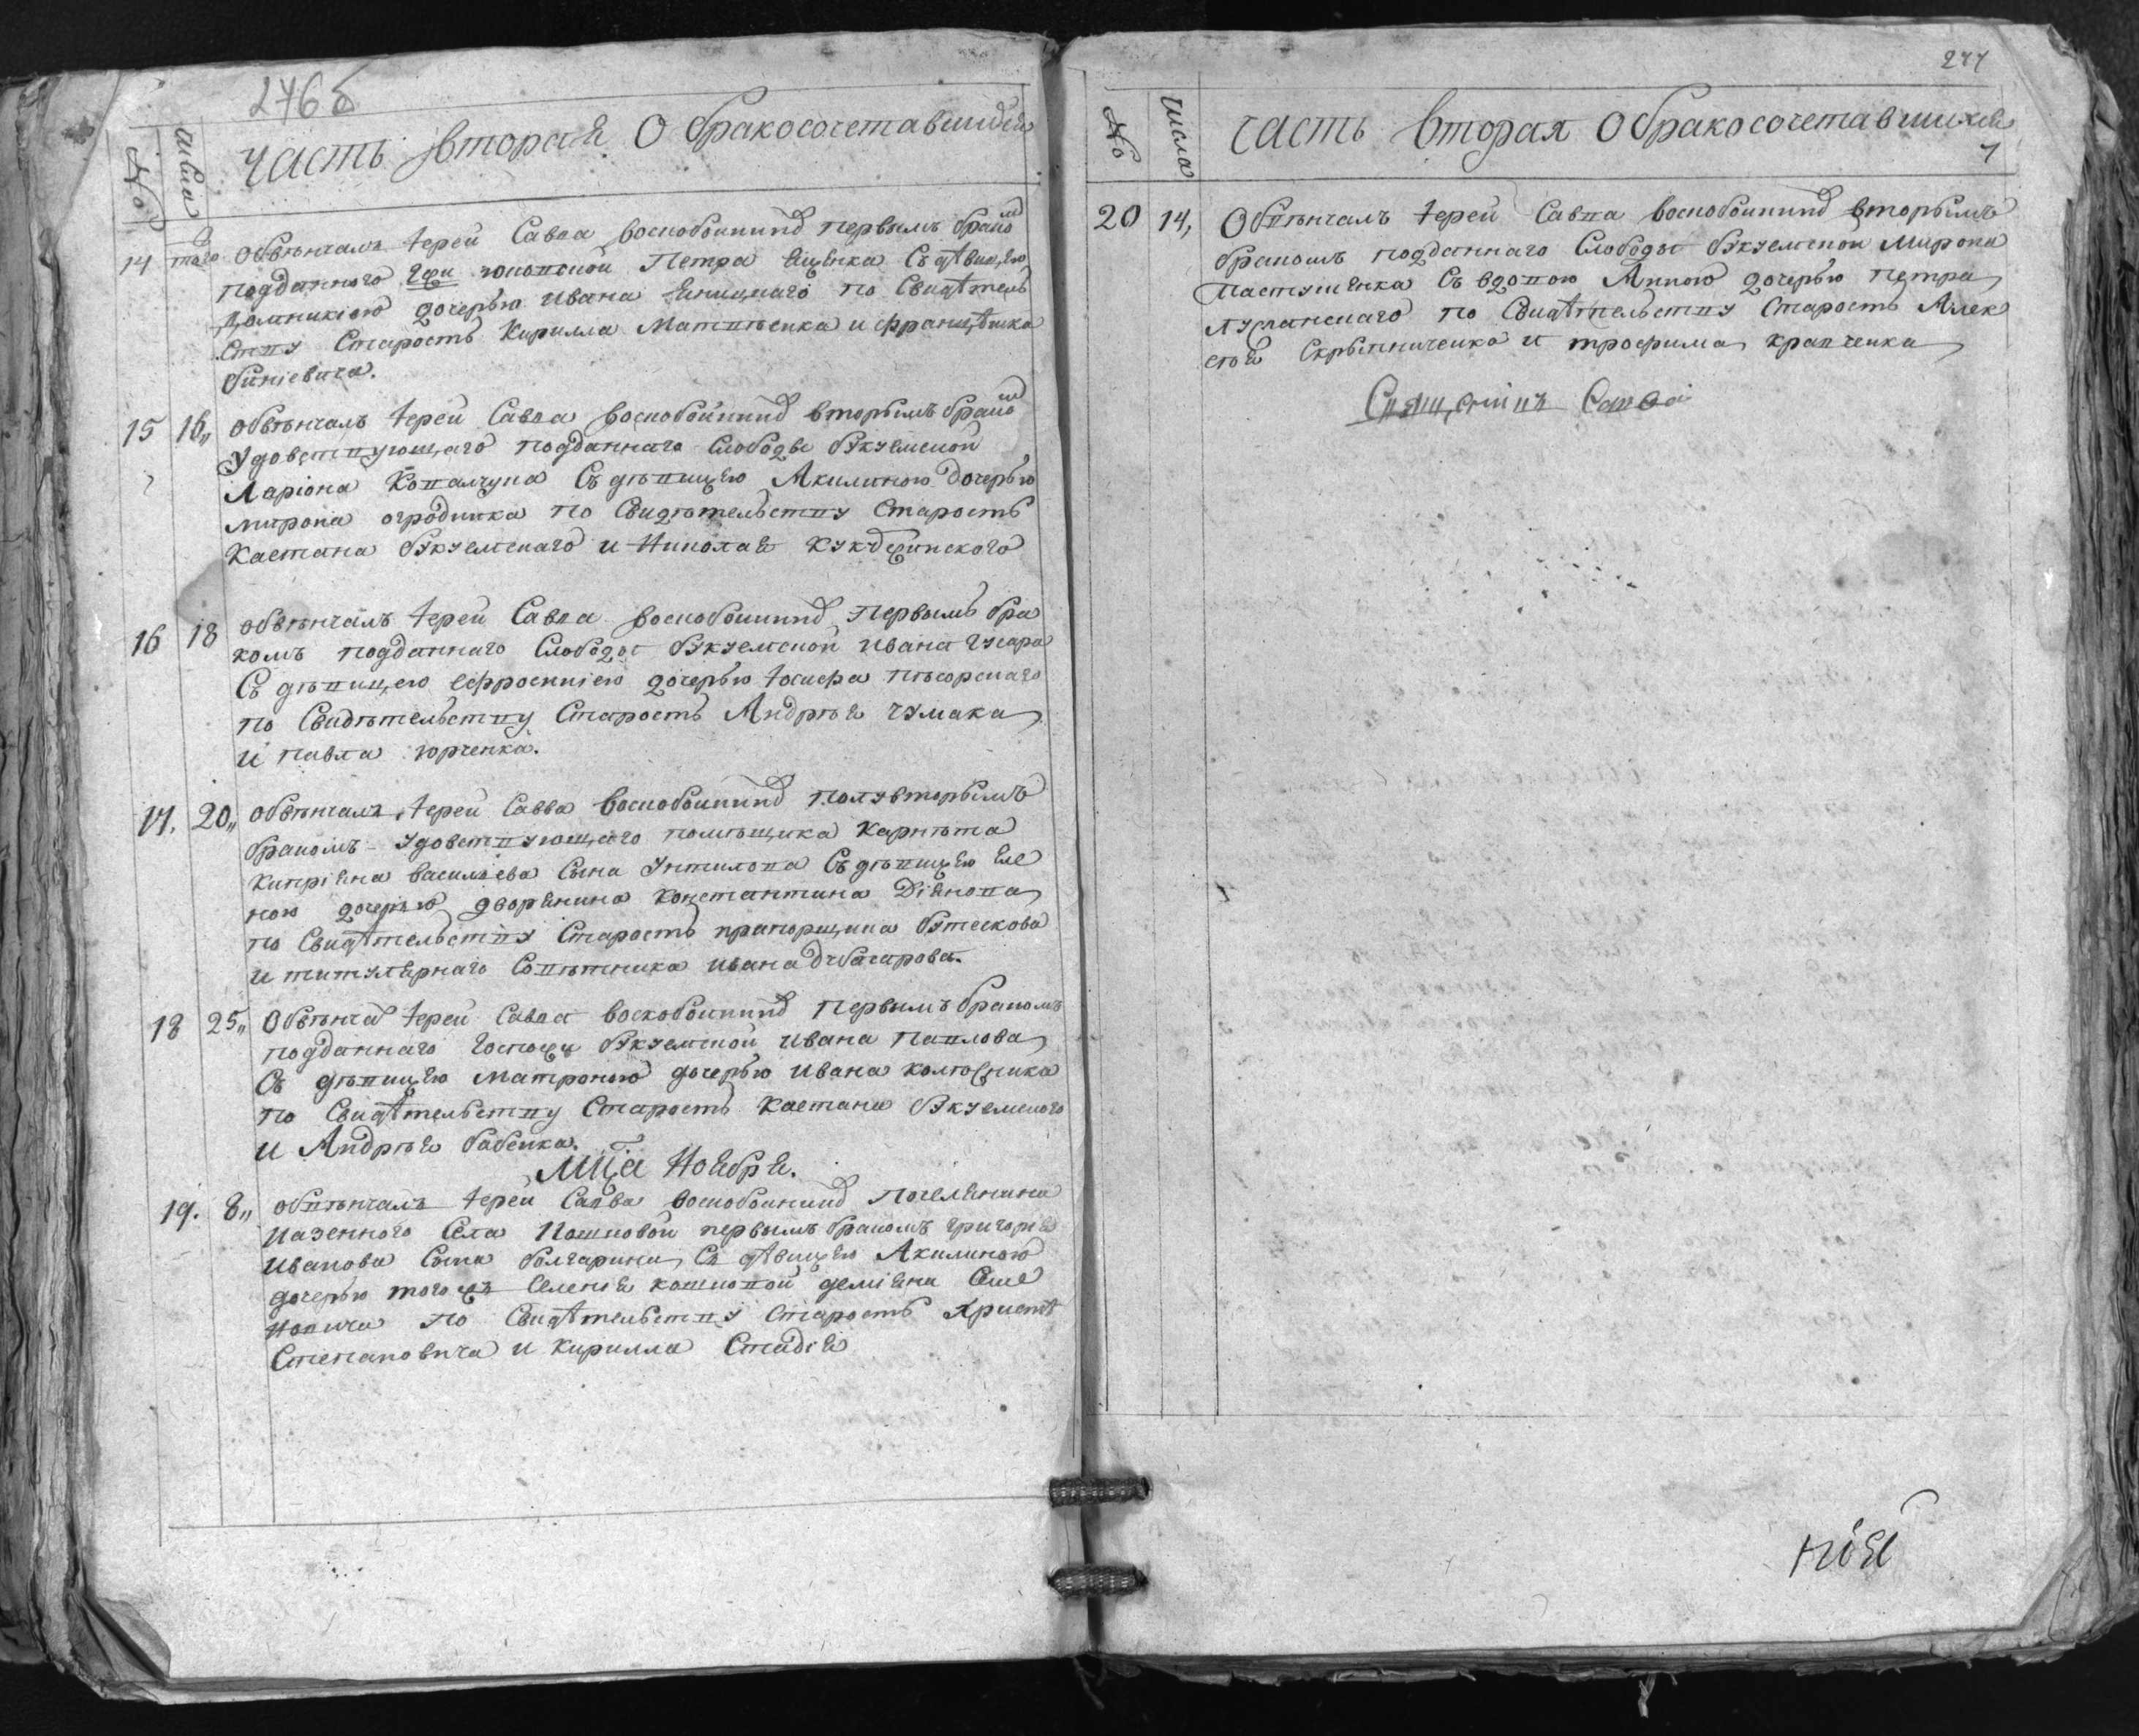 276б
№ Числа Часть вторая О бракосочетавшихся
14 того Обвѣнчалъ Іерей Савва Воскобойникъ первымъ бракомъ
подданного гжи Петра Яценка съ дѣвицею
Домникіею дочерью Ивана по Свидѣтель
ству Старостъ Кирилла Матвѣенка и Францѣшка
15 16„ Обвѣнчалъ Іерей Савва Воскобойникъ вторымъ бракомъ
удовствующаго подданнаго Слободы Букуемской
Ларіона Ковалчука Съ дѣвицею Акилиною дочерью
Мирона огродника по Свидѣтельству Старостъ
Каетана Букуемскаго и Николая
16 18 обвѣнчалъ Іерей Савва Воскобойникъ Первымъ бра
комъ подданнаго Слободы Букуемской Ивана Гусара
Съ дѣвицею Ефросиніею дочерью Іосифа
по Свидѣтельству Старостъ Андрѣя Чумака
и Павла Юрченка.
17. 20„ обвѣнчалъ Іерей Савва Воскобойникъ полувторымъ
бракомъ удовствующаго помѣщика Карнѣта
Кипріяна Васильева Сына Унтилова Съ дѣвицею Еле
ною дочерью дворянина Константина Діянова
по Свидѣтельству Старостъ прапорщика Бутескова
и титулярнаго Совѣтника Ивана
18 25„ Обвѣнча Іерей Савва Воскобойникъ Первымъ бракомъ
подданнаго Госпожи Букуемской Ивана Павлова
Съ дѣвицею Матроною дочерью Ивана Колюсника
по Свидѣтельству Старостъ Каетана Букуемского
и Андрѣя Бабенка.
Мца Ноября.
19. 8„ обвѣнчалъ Іерей Савва Воскобойникъ Поселянина
казенного Села Кошковой первымъ бракомъ Григорія
Иванова Сына болгарина Съ дѣвицею Акилиною
дочерью того жъ Селенія Кошковой Деміяна Симе
новича по Свидѣтельству Старостъ
Степановича и Кирилла Стадія
277
№ Числа Часть вторая О бракосочетавшихся
7
20 14, Обвѣнчалъ Іерей Савва Воскобойникъ вторымъ
бракомъ подданнаго Слободы Букуемской Мирона
Пастушенка Съ вдовою Анною дочерью Петра
по Свидѣтельству Старостъ Алек
сѣя Скрыпниченка и Трофима Кравченка
Священникъ Савва